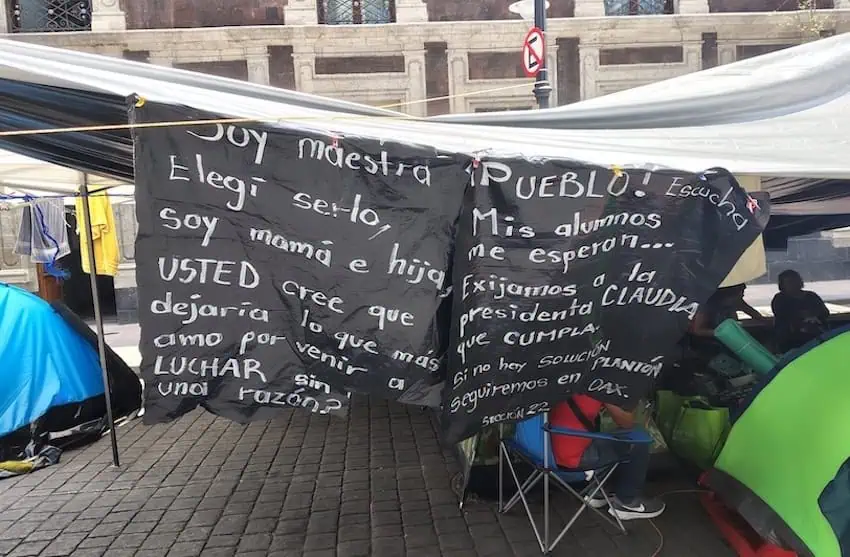 Soy maestra
Elegí serlo,
soy mamá e hija,
USTED cree que
dejaría lo que más
amo por venir a
LUCHAR sin
una razón?
¡PUEBLO! Escucha
Mis alumnos
me esperan...
Exijamos a la
presidenta CLAUDIA
que CUMPLA.
Si no hay SOLUCIÓN
Seguiremos en PLANTÓN
SECCIÓN 22 OAX.